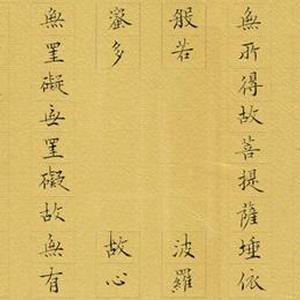 無所得故菩提薩埵依
般若 波羅
蜜多 故心
無罣礙無罣礙故無有